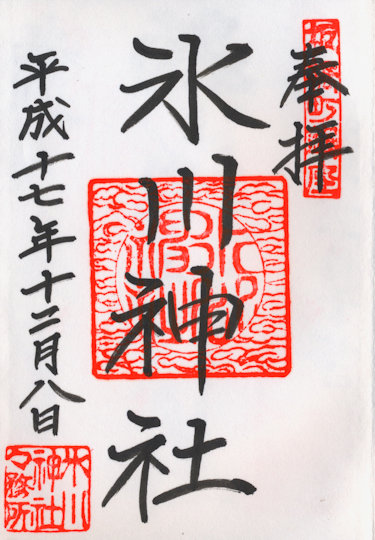 奉拝
氷川神社
平成十七年十二月八日
氷川
神社
社務所